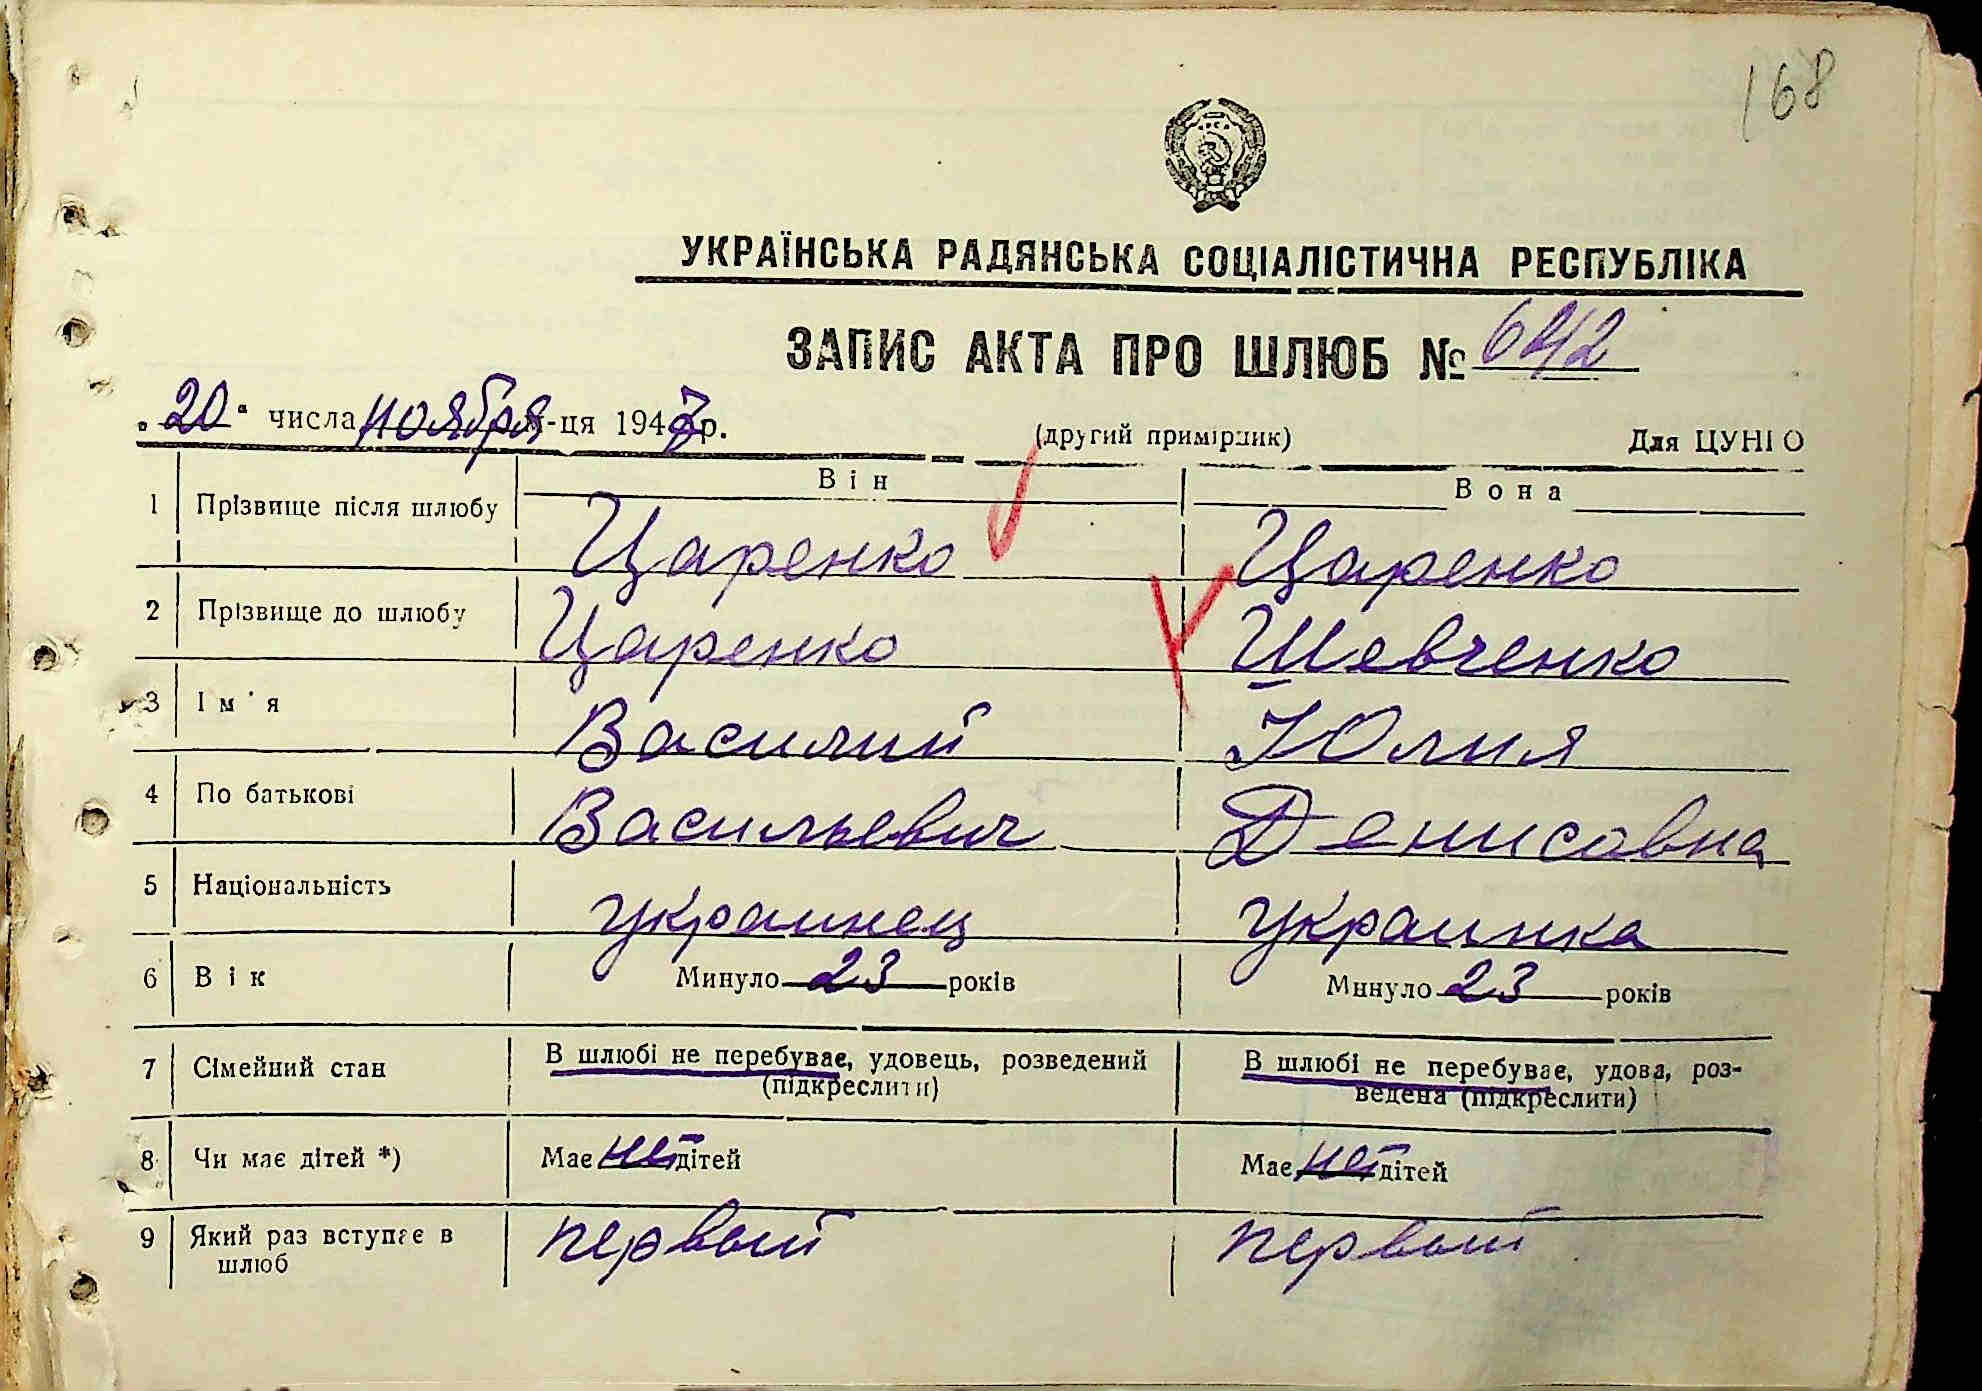 168
УКРАЇНСЬКА РАДЯНСЬКА СОЦІАЛІСТИЧНА РЕСПУБЛІКА
ЗАПИС АКТА ПРО ШЛЮБ № 642
„20“ числа ноября м-ця 1947 р. (другий примірник) Для ЦУНГО
Він Вона
1 Прізвище після шлюбу Царенко Царенко
2 Прізвище до шлюбу Царенко Шевченко
3 Ім'я Василий Юлия
4 По батькові Васильевич Денисовна
5 Національність украинец украинка
6 Вік Минуло 23 років Минуло 23 років
7 Сімейний стан В шлюбі не перебував, удовець, розведений (підкреслити) В шлюбі не перебуває, удова, роз-
ведена (підкреслити)
8 Чи має дітей *) Має нет дітей Має нет дітей
9 Який раз вступає в первый первый
шлюб